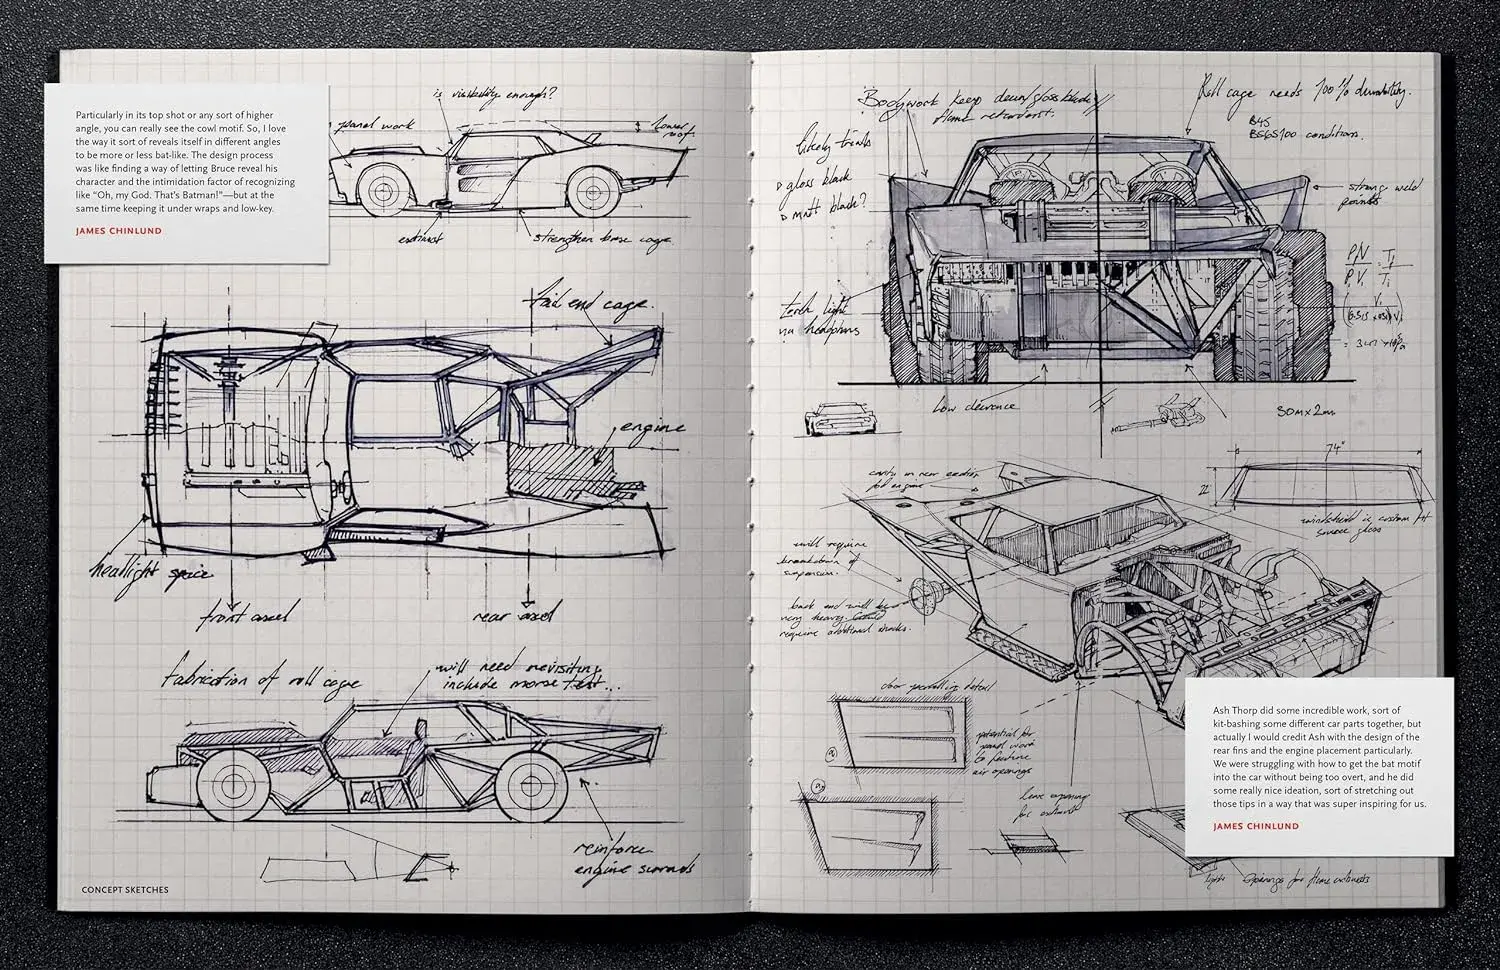 Particularly in its top shot or any sort of higher
angle, you can really see the cowl motif. So, I love
the way it sort of reveals itself in different angles
to be more or less bat-like. The design process
was like finding a way of letting Bruce reveal his
character and the intimidation factor of recognizing
like “Oh, my God. That's Batman!”—but at the
same time keeping it under wraps and low-key.
JAMES CHINLUND
is visibility enough?
panel work
lower
roof.
exhaust
strengthen base cage.
tail end cage.
engine
headlight space
front axel
rear axel
fabrication of roll cage
will need revisiting
include morse test...
reinforce
engine surrounds
CONCEPT SKETCHES
Bodywork keep down gloss black
flame retardant.
Roll cage needs 100% durability.
B4S
conditions.
likely trials
gloss black
matt black?
strong weld
points
light
low clearance
50m x 2m
74"
22
windshield is custom fit
source glass
cavity in rear section
for engine
will require
breakdown of
suspension.
back end will be
very heavy. Could
require additional shocks.
door panelling detail
potential for
panel work
to feature
air openings
leave opening
for exhaust
lights
Openings for flame exhausts
Ash Thorp did some incredible work, sort of
kit-bashing some different car parts together, but
actually I would credit Ash with the design of the
rear fins and the engine placement particularly.
We were struggling with how to get the bat motif
into the car without being too overt, and he did
some really nice ideation, sort of stretching out
those tips in a way that was super inspiring for us.
JAMES CHINLUND